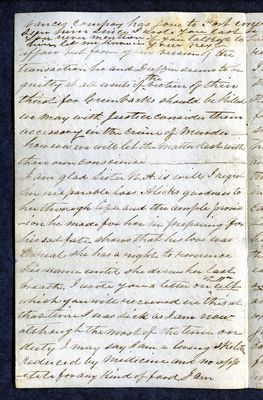 vances company has gone to Fort
seen him since I wrote you last
him let me know in your next
transaction he and Duffin seem to be
guilty at all events if the victim of their
thirst for Green backs should be killed
we may with justice consider them
accessory in the crime of Murder
however we will let the matter rest with
their own conscience
I am glad Sister is well I regret
her irreparable loss Alicks goodness to
her through life and the ample provis
ion he made for her in preparing for
his sad fate shows that his love was
she has a right to reverence
his name until she draws her last
breath, I wrote you a letter on
which you will received ere this at
that time I was sick as I am now
although the most of the time on
duty I may say I am a living skeleton
reduced by medicine and no app
etite for any kind of food I am